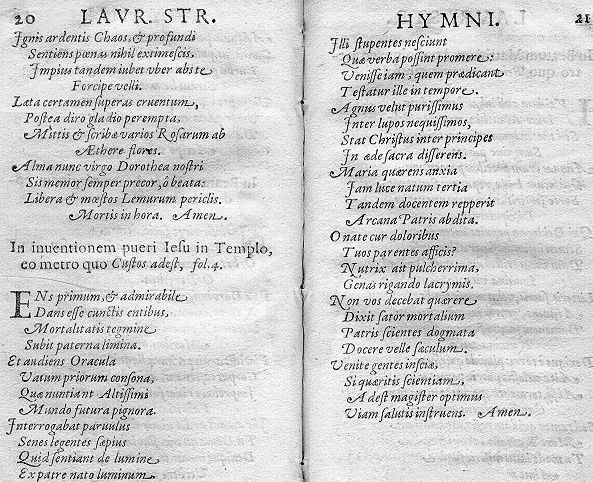 20 LAVR. STR.
Ignis ardentis Chaos, & profundi
Sentiens pœnas nihil extimescis,
Impius tandem iubet vber abs te
Forcipe velli.
Læta certamen superas cruentum,
Postea diro gladio perempta.
Mittis & scribæ varios Rosarum ab
Æthere flores.
Alma nunc virgo Dorothea nostri
Sis memor semper precor, ô beata:
Libera & mœstos Lemurum periclis.
Mortis in hora. Amen.
In inuentionem pueri Iesu in Templo,
eo metro quo Custos adest, fol. 4.
ENs primum, & admirabile
Dans esse cunctis entibus,
Mortalitatis tegmine
Subit paterna limina.
Et audiens Oracula
Vatum priorum consona,
Quæ nuntiant Altissimi
Mundo futura pignora.
Interrogabat paruulus
Senes legentes sæpius
Quid sentiant de lumine
Ex patre nato luminum.
HYMNI. 21
Illi stupentes nesciunt
Quæ verba possint promere:
Venisse iam, quem prædicant
Testatur ille in tempore.
Agnus velut purissimus
Inter lupos nequissimos,
Stat Christus inter principes
In æde sacra disserens.
Maria quærens anxia
Iam luce natum tertia
Tandem docentem repperit
Arcana Patris abdita.
O nate cur doloribus
Tuos parentes afficis?
Nutrix ait pulcherrima,
Genas rigando lacrymis.
Non vos decebat quærere
Dixit sator mortalium
Patris scientes dogmata
Docere velle sæculum.
Venite gentes insciæ,
Si quæritis scientiam,
Adest magister optimus
Viam salutis instruens. Amen.